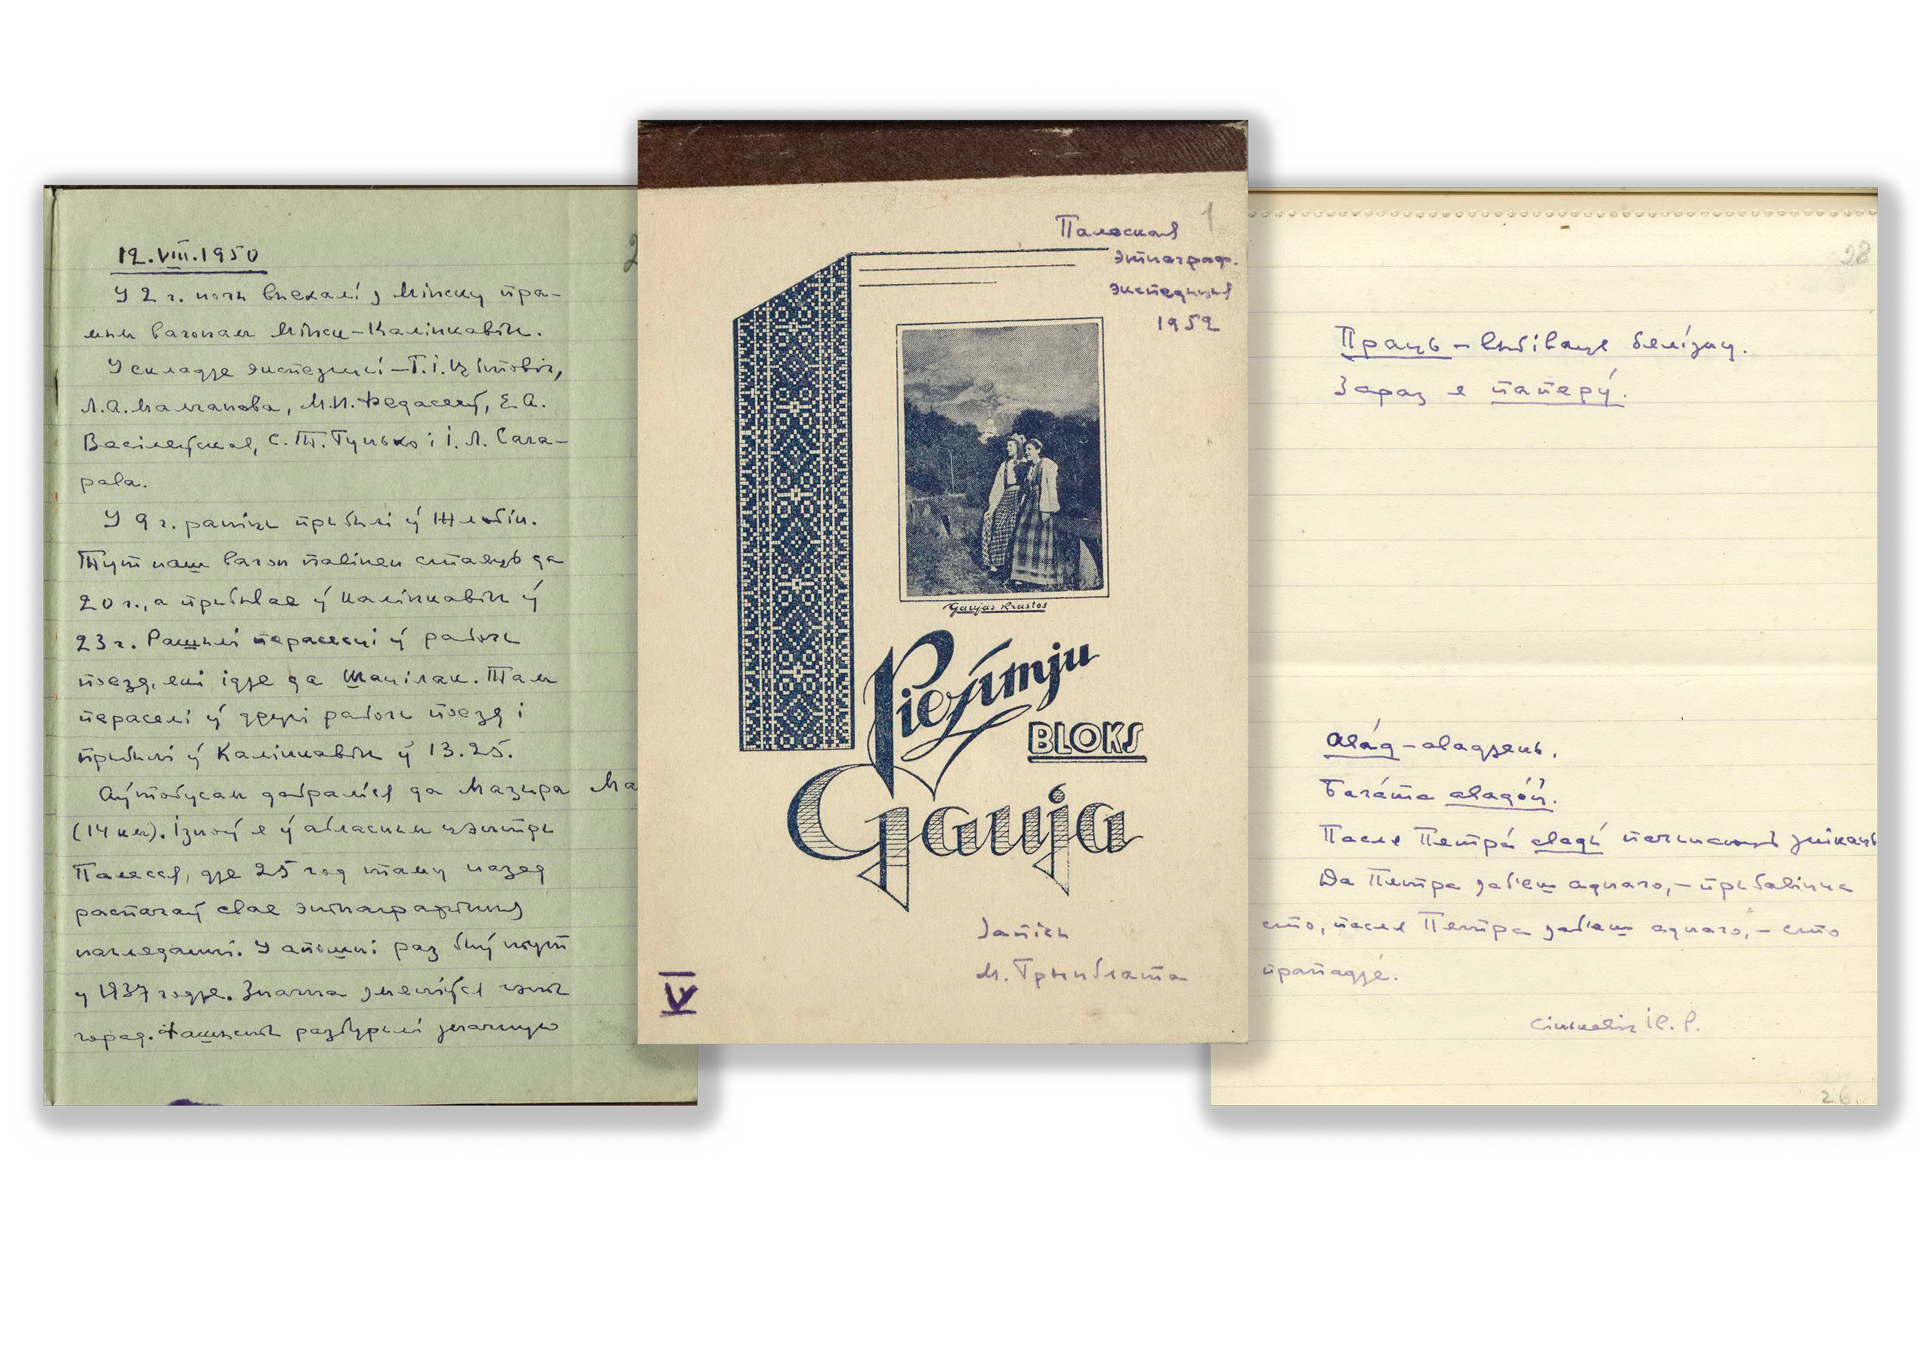 12.VIII.1950
У 2 г. ночы выехалі з Мінску пра-
мым вагонам Мінск-Калінкавічы.
У складзе экспедыцыі – Г.І. Цітовіч,
Л.А. Малчанова, М.И. Федасееў, Е.А.
Васілеўская, С. Т. і І. Л. Сача-
рава.
У 9 г. раніцы прыбылі ў Жлобін.
Тут наш вагон павінен стаяць да
20 г., а прыбывае ў Калінкавічы ў
23 г. Рашылі перасесці ў рабочы
поезд, які ідзе да Шацілак. Там
пераселі ў другі рабочы поезд і
прыбылі ў Калінкавічы ў 13.25.
Аўтобусам дабраліся да Мазыра Ма
(14 км). Ізноў я ў абласным цэнтры
Палесся, дзе 25 год таму назад
распачаў свае этнаграфічныя
нагляданні. У апошні раз быў тут
у 1937 годзе. Значна змяніўся гэты
горад. Фашысты разбурылі значную
Палеская 1
этнаграф.
экспедыцыя
1952
Gaujas Krastos
Piezīmju
BLOKS
Gauja
Запісы
М. Грынблата
IV
28
Праць – выбіваць бялізну.
Зараз я паперу́.
Ава́д – авадзень.
Бага́та авадо́ў.
Пасля Петра́ авады́ пачынаюць знікаць
Да Пятра заб'еш аднаго, – прыбавіцца
сто, пасля Пятра заб'еш аднаго, – сто
прападзе́.
Сінькевіч
26.